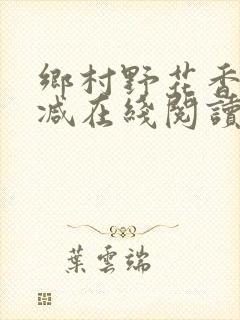 鄉村野花香
减在綫閱讀
葉雲端